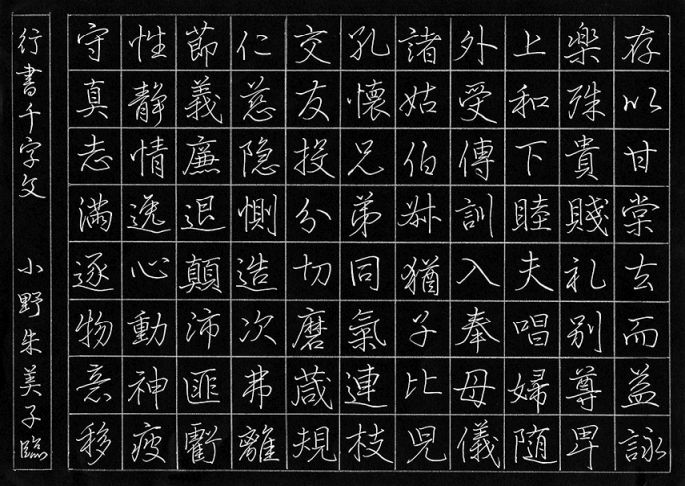 存以甘棠去而益詠
楽殊貴賤礼別尊卑
上和下睦夫唱婦随
外受傅訓入奉母儀
諸姑伯叔猶子比児
孔懐兄弟同氣連枝
交友投分切磨葴規
仁慈隐惻造次弗離
節義廉退顛沛匪虧
性静情逸心動神疲
守真志満逐物意移
行書千字文 小野朱美子臨